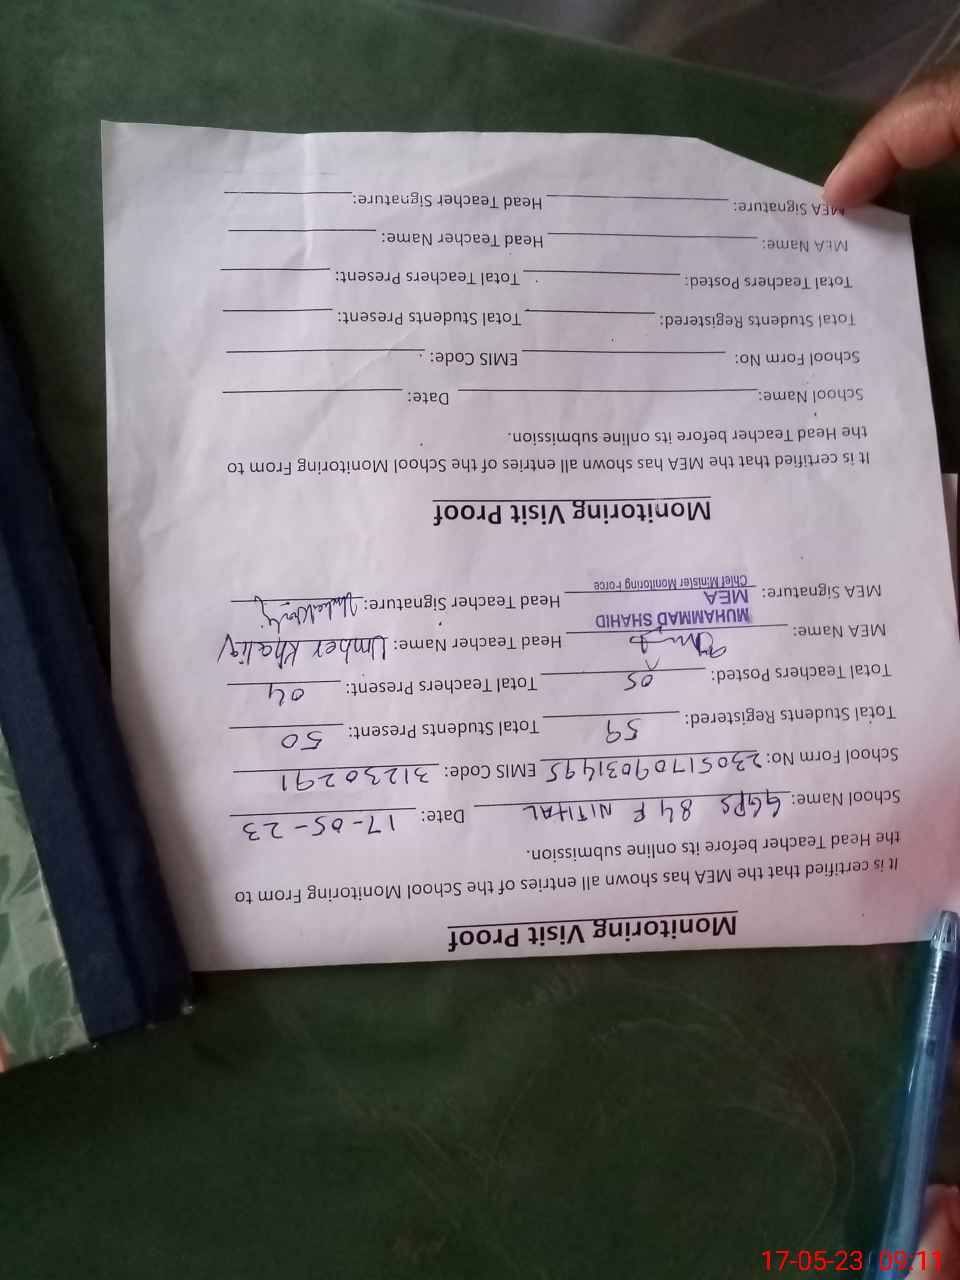 Monitoring Visit Proof
It is certified that the MEA has shown all entries of the School Monitoring From to
the Head Teacher before its online submission.
School Name: GGPS 84 F NITIHAL Date: 17-05-23
School Form No: 230517090331495 EMIS Code: 31230291
Total Students Registered: 59 Total Students Present: 50
Total Teachers Posted: 05 Total Teachers Present: 04
MEA Name: Head Teacher Name: Umber Khaliq
MUHAMMAD SHAHID
MEA
MEA Signature: Head Teacher Signature:
Chief Minister Monitoring Force
Monitoring Visit Proof
It is certified that the MEA has shown all entries of the School Monitoring From to
the Head Teacher before its online submission.
School Name: Date:
School Form No: EMIS Code:
Total Students Registered: Total Students Present:
Total Teachers Posted: Total Teachers Present:
MEA Name: Head Teacher Name:
MEA Signature: Head Teacher Signature:
17-05-23 09:11